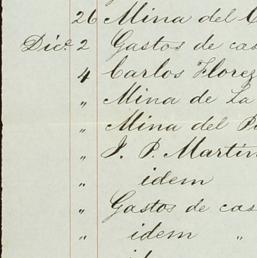 26 Mina del C
Dice. 2 Gastos de cas
4 Carlos Florez
" Mina de La
" Mina del P
" J. P. Martin
" idem
" Gastos de cas
" idem "